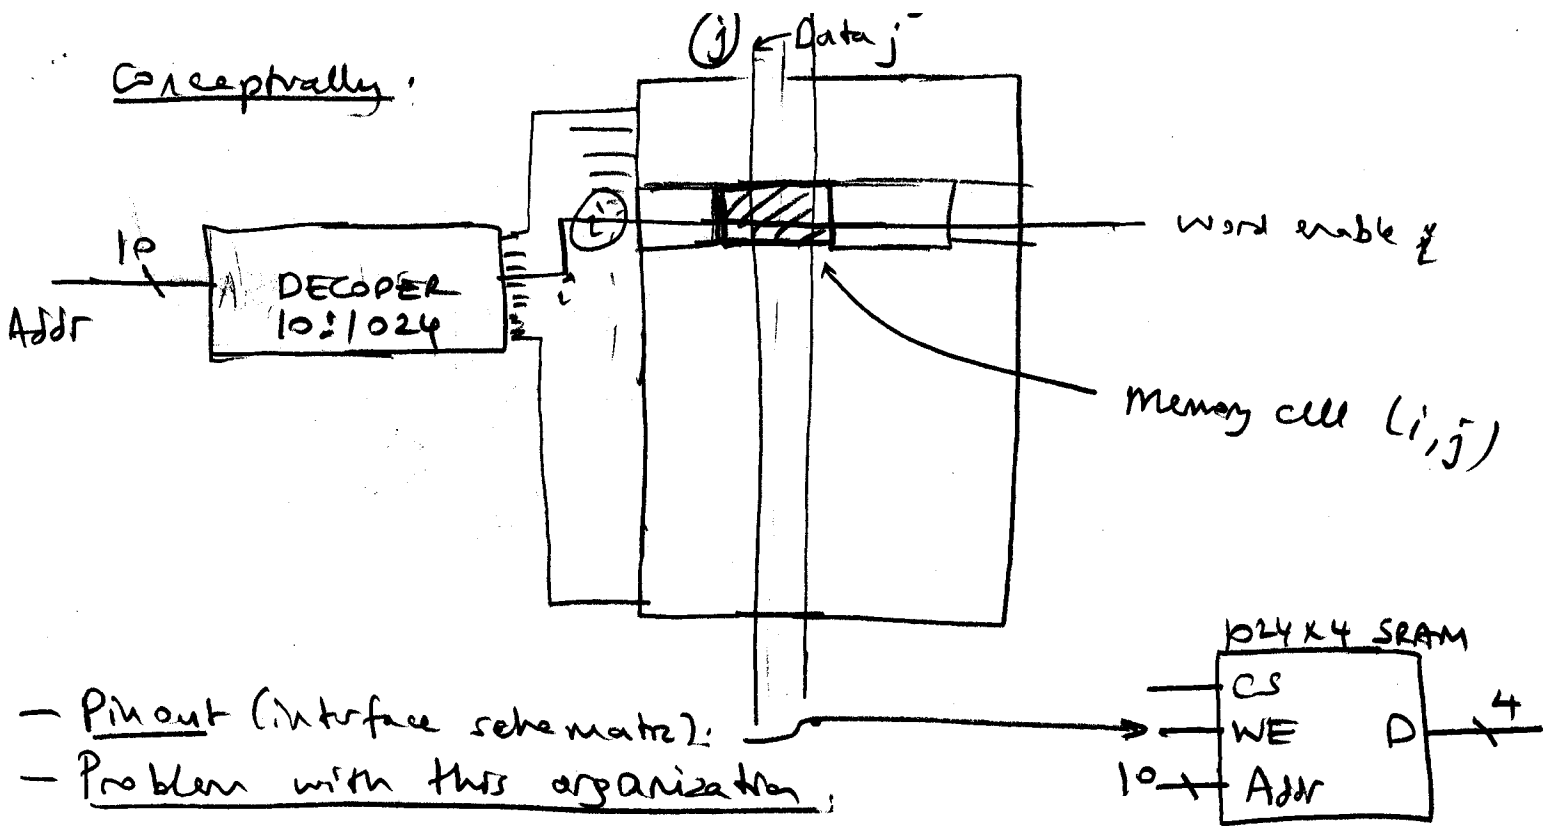 Conceptually:
(j) ← Data j
10
Addr
A DECODER
10:1024
i
i
word enable i
Memory cell (i,j)
1024x4 SRAM
CS
WE D 4
10 Addr
— Pinout (interface schematic).
— Problem with this organization.